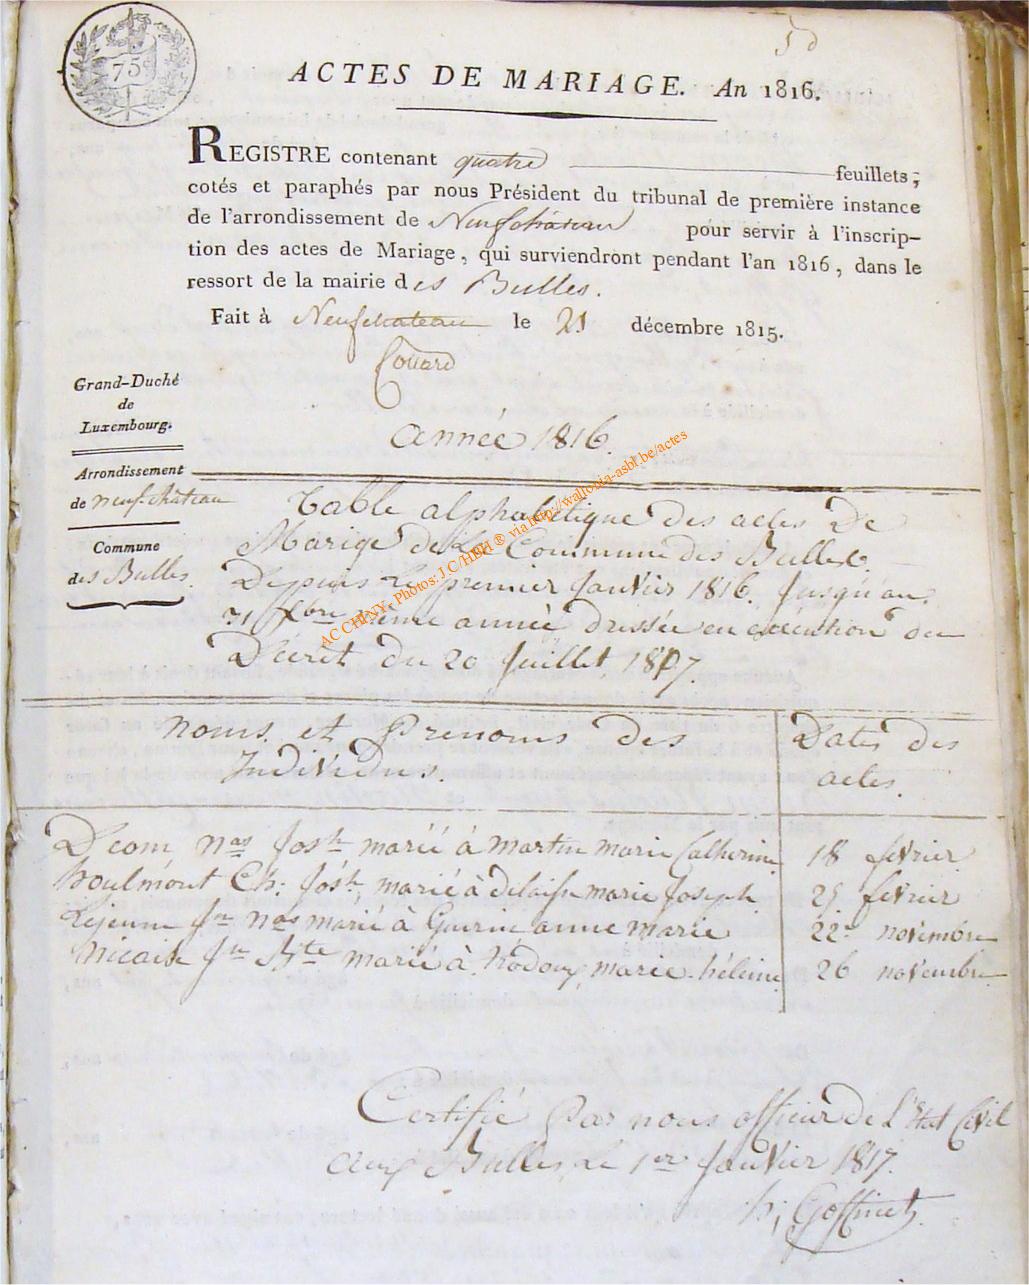 75c
50
ACTES DE MARIAGE. An 1816.
REGISTRE contenant quatre feuillets,
cotés et paraphés par nous Président du tribunal de première instance
de l'arrondissement de Neufchâteau pour servir à l'inscrip-
tion des actes de Mariage, qui surviendront pendant l'an 1816, dans le
ressort de la mairie des Bulles.
Fait à Neufchateau le 21 décembre 1815.
Collard
Grand-Duché
de
Luxembourg.
Arrondissement
de neufchâteau
Commune
des Bulles
année 1816.
Table alphabetique des actes De
Mariage de La Commune des Bulles.
Depuis Le premier Janvier 1816. Jusqu'au
31 Xbre même année dressée en execution du
Décret du 20 Juillet 1807
noms et Prenoms Des
Individus.
Dates des
actes.
Dcom nas Josh marié à martin marie Catherine 18 fevrier
houlmont Ch: Josh marié à marie Joseph 25 fevrier
Lejeune Jn nas marié à Guerin anne marie 22 novembre
nicaise Jn Bte marié à hodouy marie hélène 26 novembre
Certifié Par nous officier de L'Etat Civil
aux Bulles Le 1er Janvier 1817.
h, Goffinet
AC CHINY - Photos: J.C/HBH ® via http://wallonia-asbl.be/actes